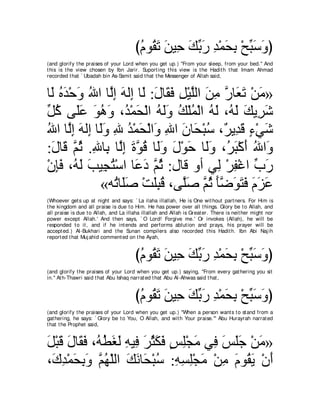 (وَسَبِّحْ بِحَمْدِ رَبِّكَ حِينَ تَقُومُ)
(and glorify the praises of your Lord when you get up.) "From your sleep, from your bed." And
this is the view chosen by Ibn Jarir. Suporting this view is the Hadith that Imam Ahmad
recorded that `Ubadah bin As-Samit said that the Messenger of Allah said,
«مَنْ تَعَارَّ مِنَ اللَّيْلِ فَقَالَ: لَا إِلَهَ إِلَّا اللهُ وَحْدَهُ لَا
شَرِيكَ لَهُ، لَهُ الْمُلْكُ وَلَهُ الْحَمْدُ، وَهُوَ عَلَى كُلِّ
شَيْءٍ قَدِيرٌ، سُبْحَانَ اللهِ وَالْحَمْدُ للهِ وَلَا إِلَهَ إِلَّا اللهُ
وَاللهُ أَكْبَرُ، وَلَا حَوْلَ وَلَا قُوَّةَ إِلَّا بِاللهِ. ثُمَّ قَالَ:
رَبِّ اغْفِرْ لِي أَو قَالَ: ثُمَّ دَعَا اسْتُجِيبَ لَهُ، فَإِنْ
عَزَمَ فَتَوَضَّأَ ثُمَّ صَلَّى، قُبِلَتْ صَلَاتُه»
(Whoever gets up at night and says: `La ilaha illallah, He is One without partners. For Him is
the kingdom and all praise is due to Him. He has power over all things. Glory be to Allah, and
all praise is due to Allah, and La illaha illallah and Allah is Greater. There is neither might nor
power except Allah.' And then says, `O Lord! Forgive me.' Or invokes (Allah), he will be
responded to it, and if he intends and performs ablution and prays, his prayer will be
accepted.) Al-Bukhari and the Sunan compilers also recorded this Hadith. Ibn Abi Najih
reported that Mujahid commented on the Ayah,
(وَسَبِّحْ بِحَمْدِ رَبِّكَ حِينَ تَقُومُ)
(and glorify the praises of your Lord when you get up.) saying, "From every gathering you sit
in." Ath-Thawri said that Abu Ishaq narrated that Abu Al-Ahwas said that,
(وَسَبِّحْ بِحَمْدِ رَبِّكَ حِينَ تَقُومُ)
(and glorify the praises of your Lord when you get up.) "When a person wants to stand from a
gathering, he says: `Glory be to You, O Allah, and with Your praise.'" Abu Hurayrah narrated
that the Prophet said,
«مَنْ جَلَسَ فِي مَجْلِسٍ فَكَثُرَ فِيهِ لَغَطُهُ، فَقَالَ قَبْلَ
أَنْ يَقُومَ مِنْ مَجْلِسِهِ: سُبْحَانَكَ اللَّهُمَّ وَبِحَمْدِكَ،